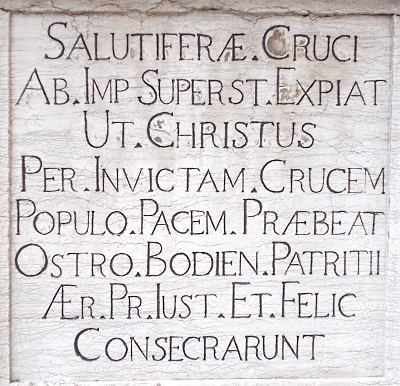 SALUTIFERÆ.CRUCI
AB.IMP SUPERST.EXPIAT
UT.CHRISTUS
PER.INVICTAM.CRUCEM
POPULO.PACEM.PRÆBEAT
OSTRO.BODIEN.PATRITII
ÆR.PR.IUST.ET.FELIC
CONSECRARUNT